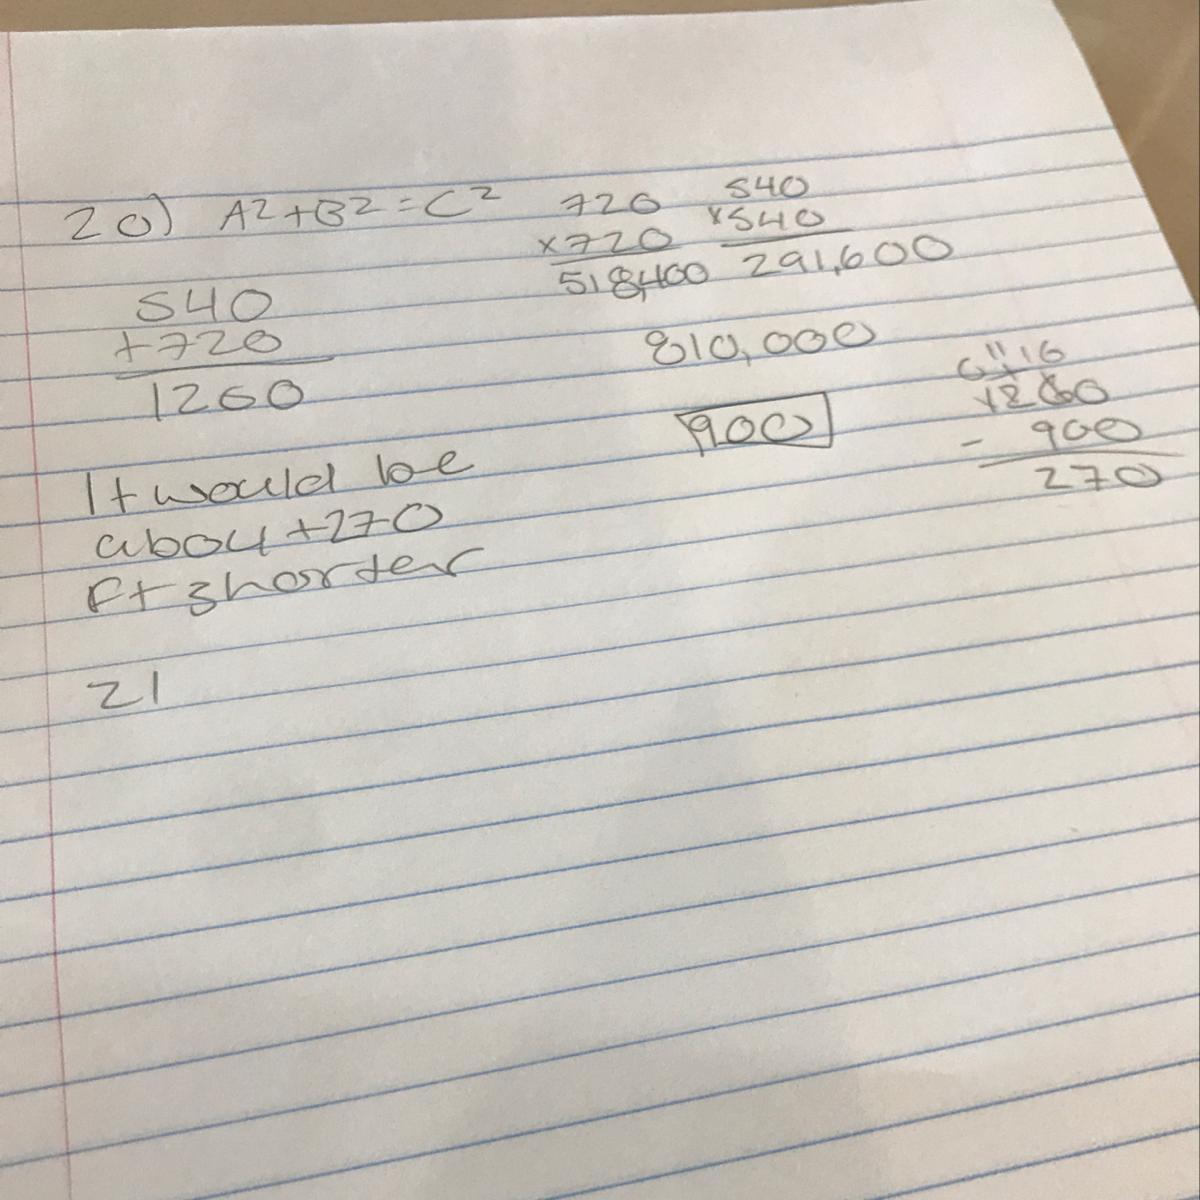 20) A²+B²=C²
540
+720
1260
It would be
about 270
Ft shorter
720
×720
518,400
540
×540
291,600
810,000
900
0 11 16
1260
- 900
270
21